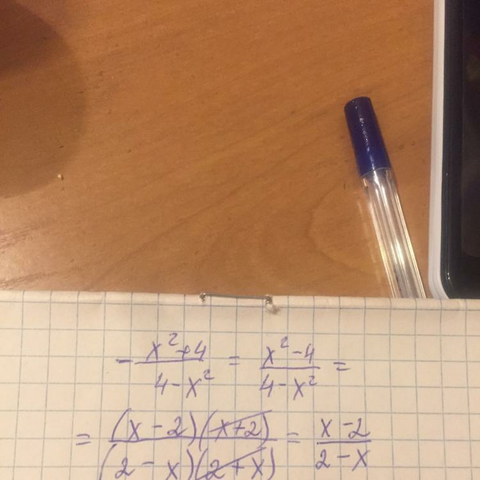 - (x²+4)/(4-x²) = (x²-4)/(4-x²) =
= ((x-2)(x+2))/((2-x)(2+x)) = (x-2)/(2-x)